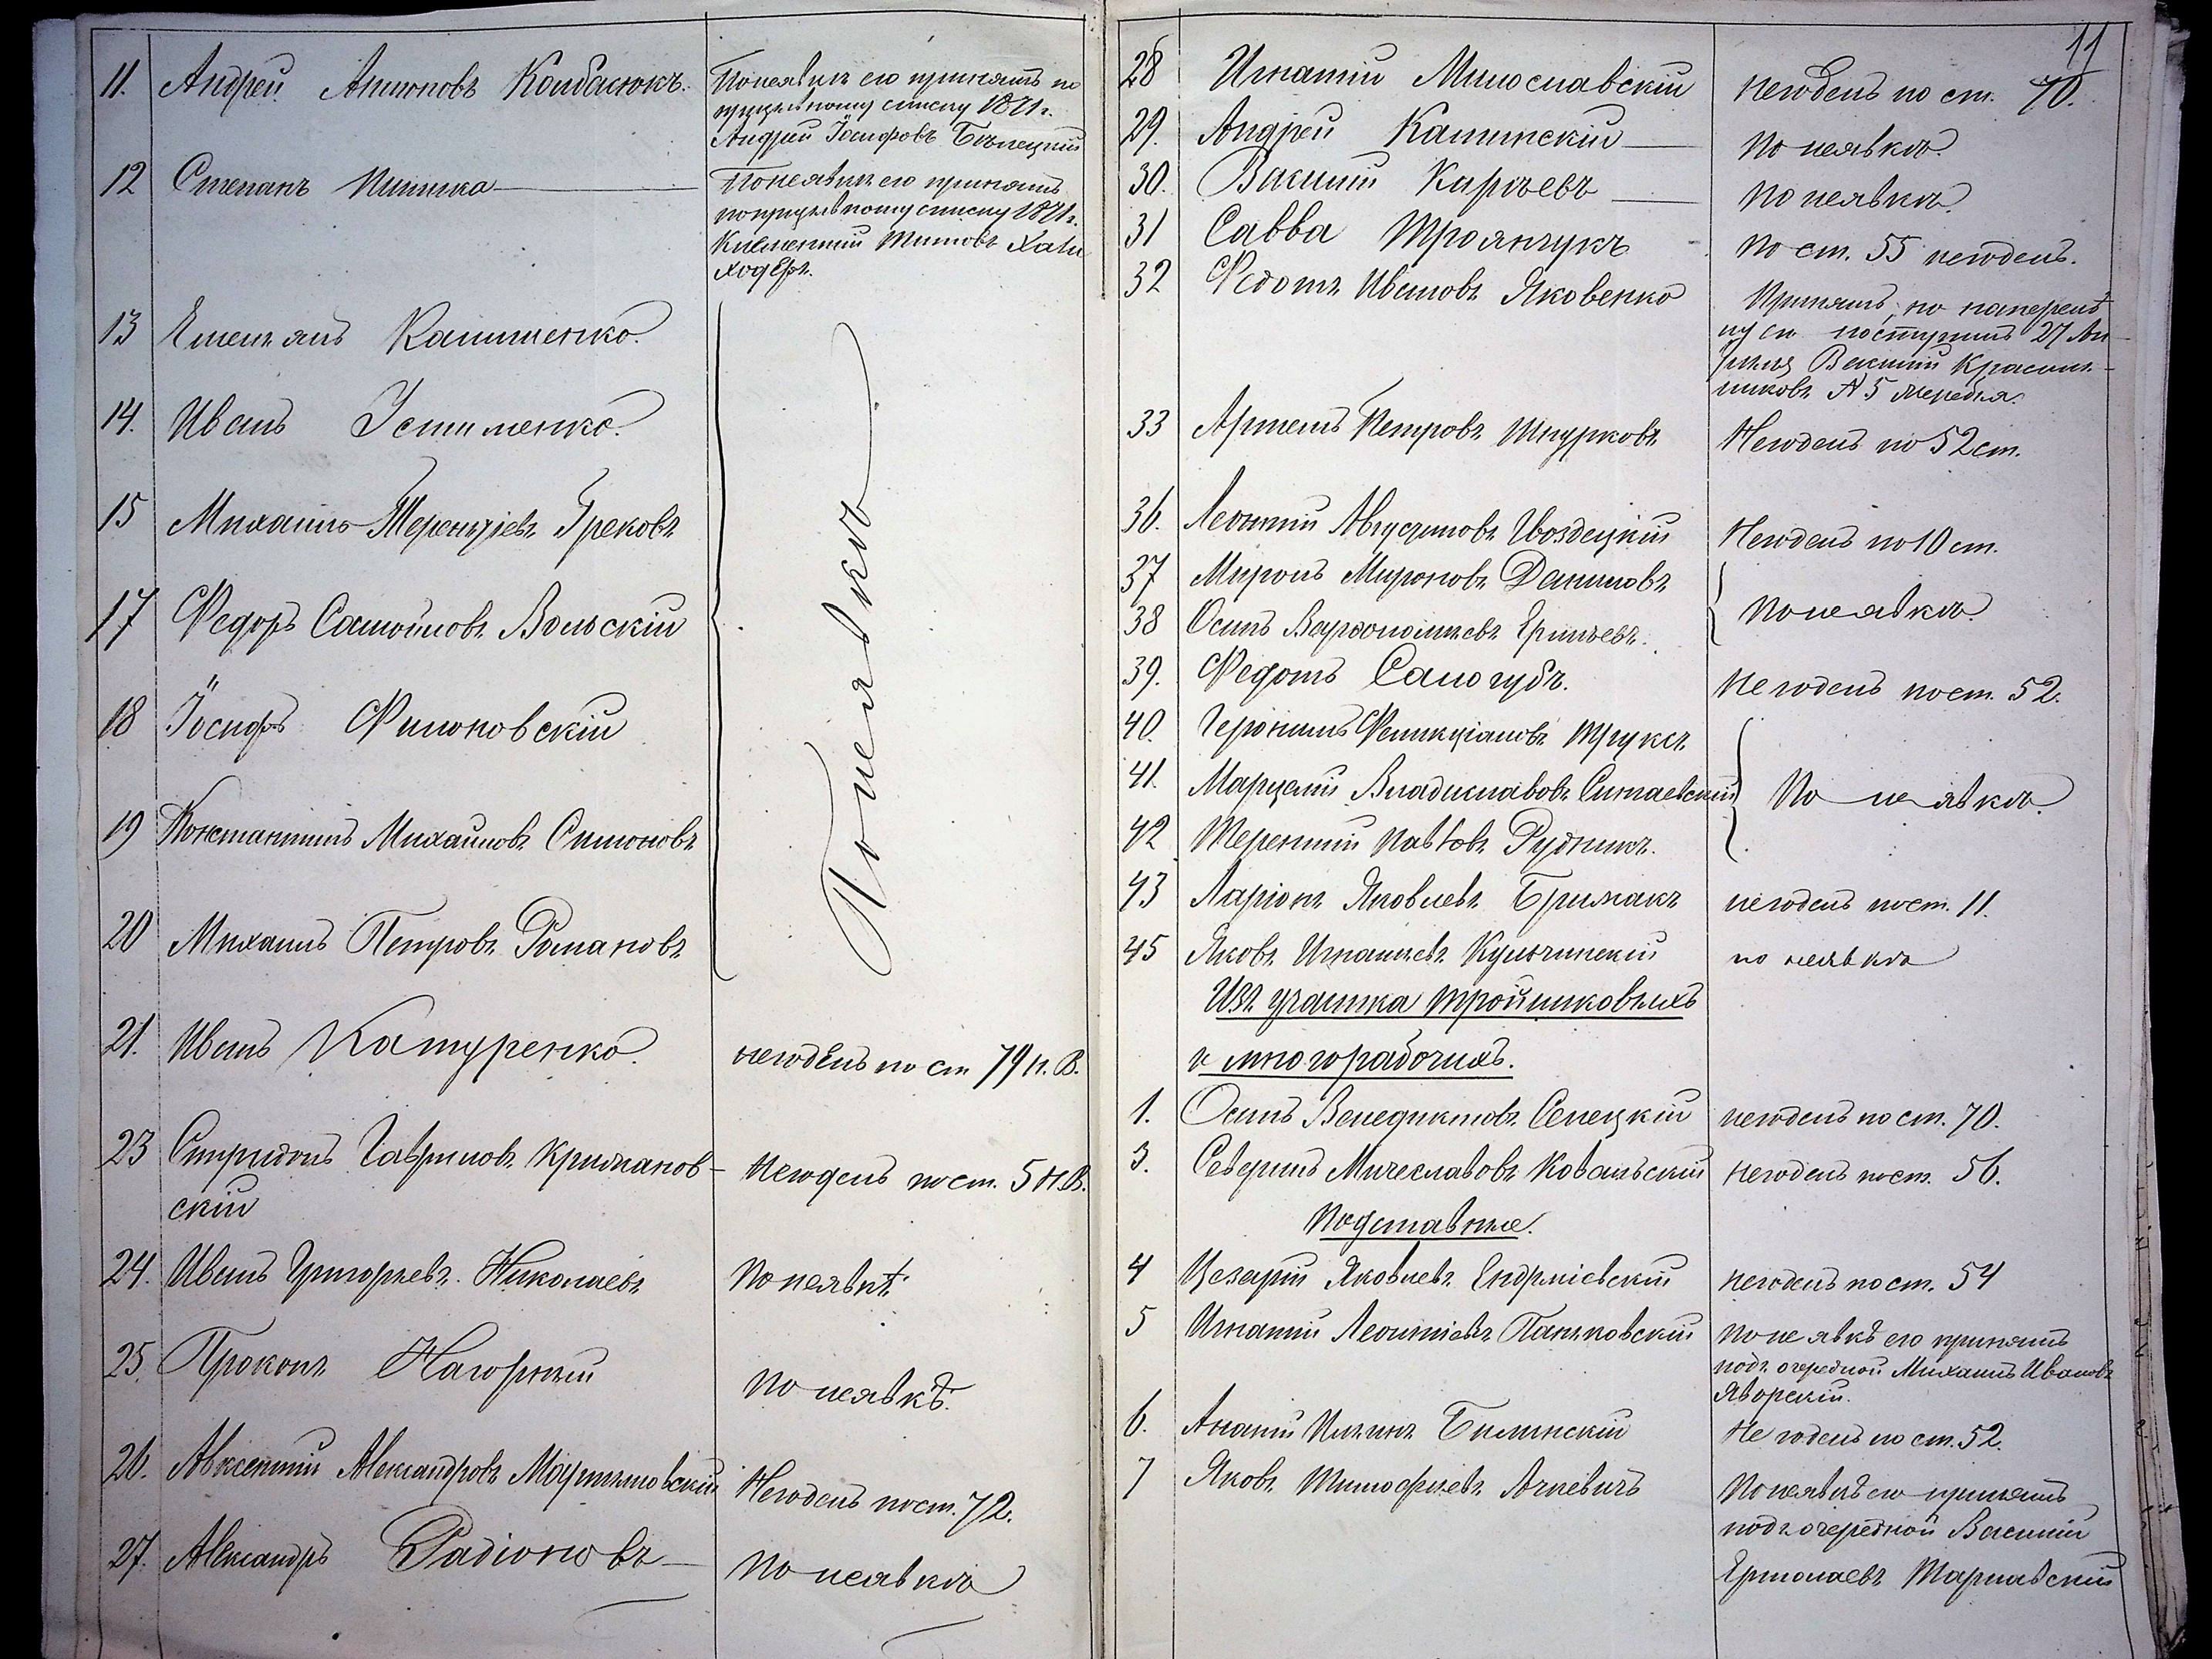 11. Андрей Антоновъ Колбасюкъ.
По неявкѣ его принятъ по
призывному списку 1871 г.
Андрей Іосифовъ
12 Степанъ
По неявкѣ его принятъ
по призывному списку 1871 г.
Климентий Титовъ
13 Емельянъ
14. Иванъ Устименко.
15 Михаилъ Терентіевъ Грековъ
17 Федоръ Самойловъ Вольскій
18 Іосифъ Филоновскій
19 Константинъ Михаиловъ Симоновъ
20 Михаилъ Петровъ Романовъ
По неявкѣ
21. Иванъ Катуренко.
негоденъ по ст 79 п. В.
23 Спиридонъ Гавриловъ Крижанов-
скій
Негоденъ по ст. 5 н.В.
24. Иванъ Григорьевъ Николаевъ
По неявкѣ
25. Прокопъ Нагорный
По неявкѣ.
26. Авксентий Александровъ
Негоденъ по ст. 72.
27. Александръ Радіоновъ
По неявкѣ
11
28 Игнатій Милославскій
Негоденъ по ст. 70.
29. Андрей Калинскій
По неявкѣ.
30. Василій Карѣевъ
По неявкѣ.
31 Савва Троянчукъ
По ст. 55 негоденъ.
32 Федотъ Ивановъ Яковенко
Принятъ, но наперед
поступилъ 27 Ап-
рѣля Василий Красиль-
никовъ № 5 жеребья.
33 Артемъ Петровъ Шнурковъ
Негоденъ по 52 ст.
36. Леонтій Августиновъ Гвоздецкій
Негоденъ по 10 ст.
37 Миронъ Мироновъ Даниловъ
38 Осипъ Варфоломѣевъ
По неявкѣ.
39. Федотъ Салогубъ.
Негоденъ по ст. 52.
40. Іеронимъ Фелиціановъ
41. Марцелій Владиславовъ
42 Терентий Павловъ Рудникъ.
По неявкѣ.
43 Ларіонъ Яковлевъ Бримакъ
негоденъ по ст. 11.
45 Яковъ Игнатьевъ Кульчинскій
по неявкѣ
Изъ участка тройниковыхъ
и многорабочихъ.
1. Осипъ Венедиктовъ Сенецкій
негоденъ по ст. 70.
3. Северинъ Мичеславовъ Ковальскій
негоденъ по ст. 56.
Подставные.
4 Цезарій Яковлевъ
негоденъ по ст. 54
5 Игнатій Леонтіевъ Паньковскій
По неявкѣ его принятъ
подъ очередной Михаилъ Ивановъ
Яворскій.
6. Ананій Ильинъ Билинскій
Не годенъ по ст. 52.
7 Яковъ Тимофѣевъ Ачкевичъ
По неявкѣ его принятъ
подъ очередной Василій
Ермолаевъ Тарнавскій